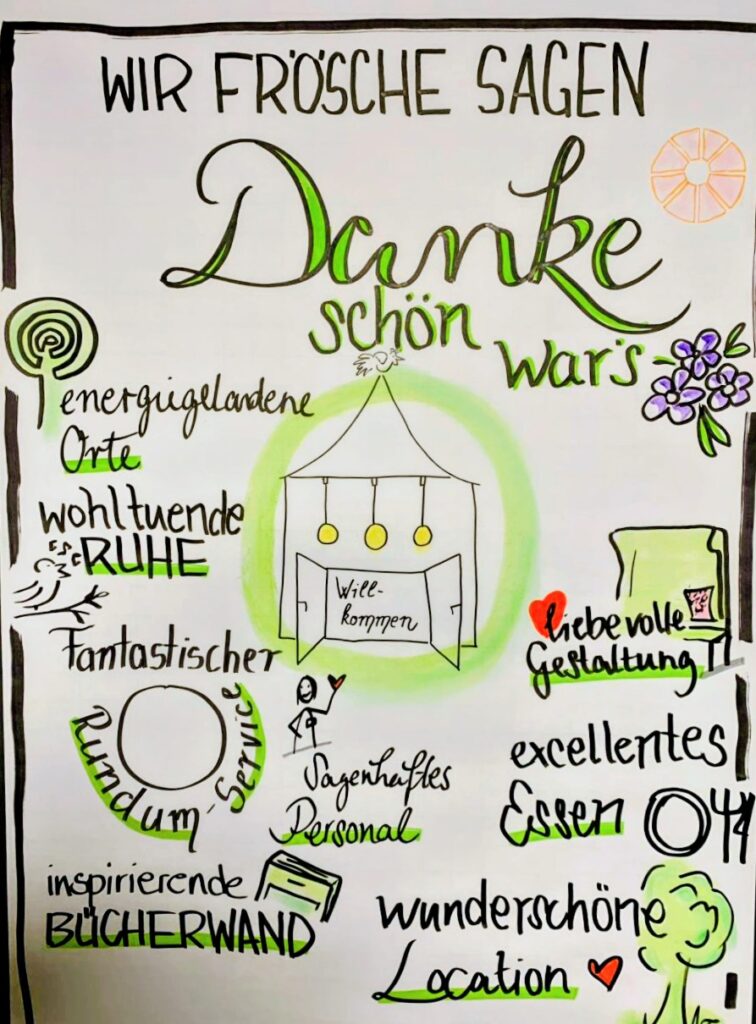 WIR FRÖSCHE SAGEN
Danke
schön
war's
energiegeladene
Orte
wohltuende
RUHE
Fantastischer
Rundum-Service
Will-
kommen
liebevolle
Gestaltung
Sagenhaftes
Personal
excellentes
Essen
inspirierende
BÜCHERWAND
wunderschöne
Location